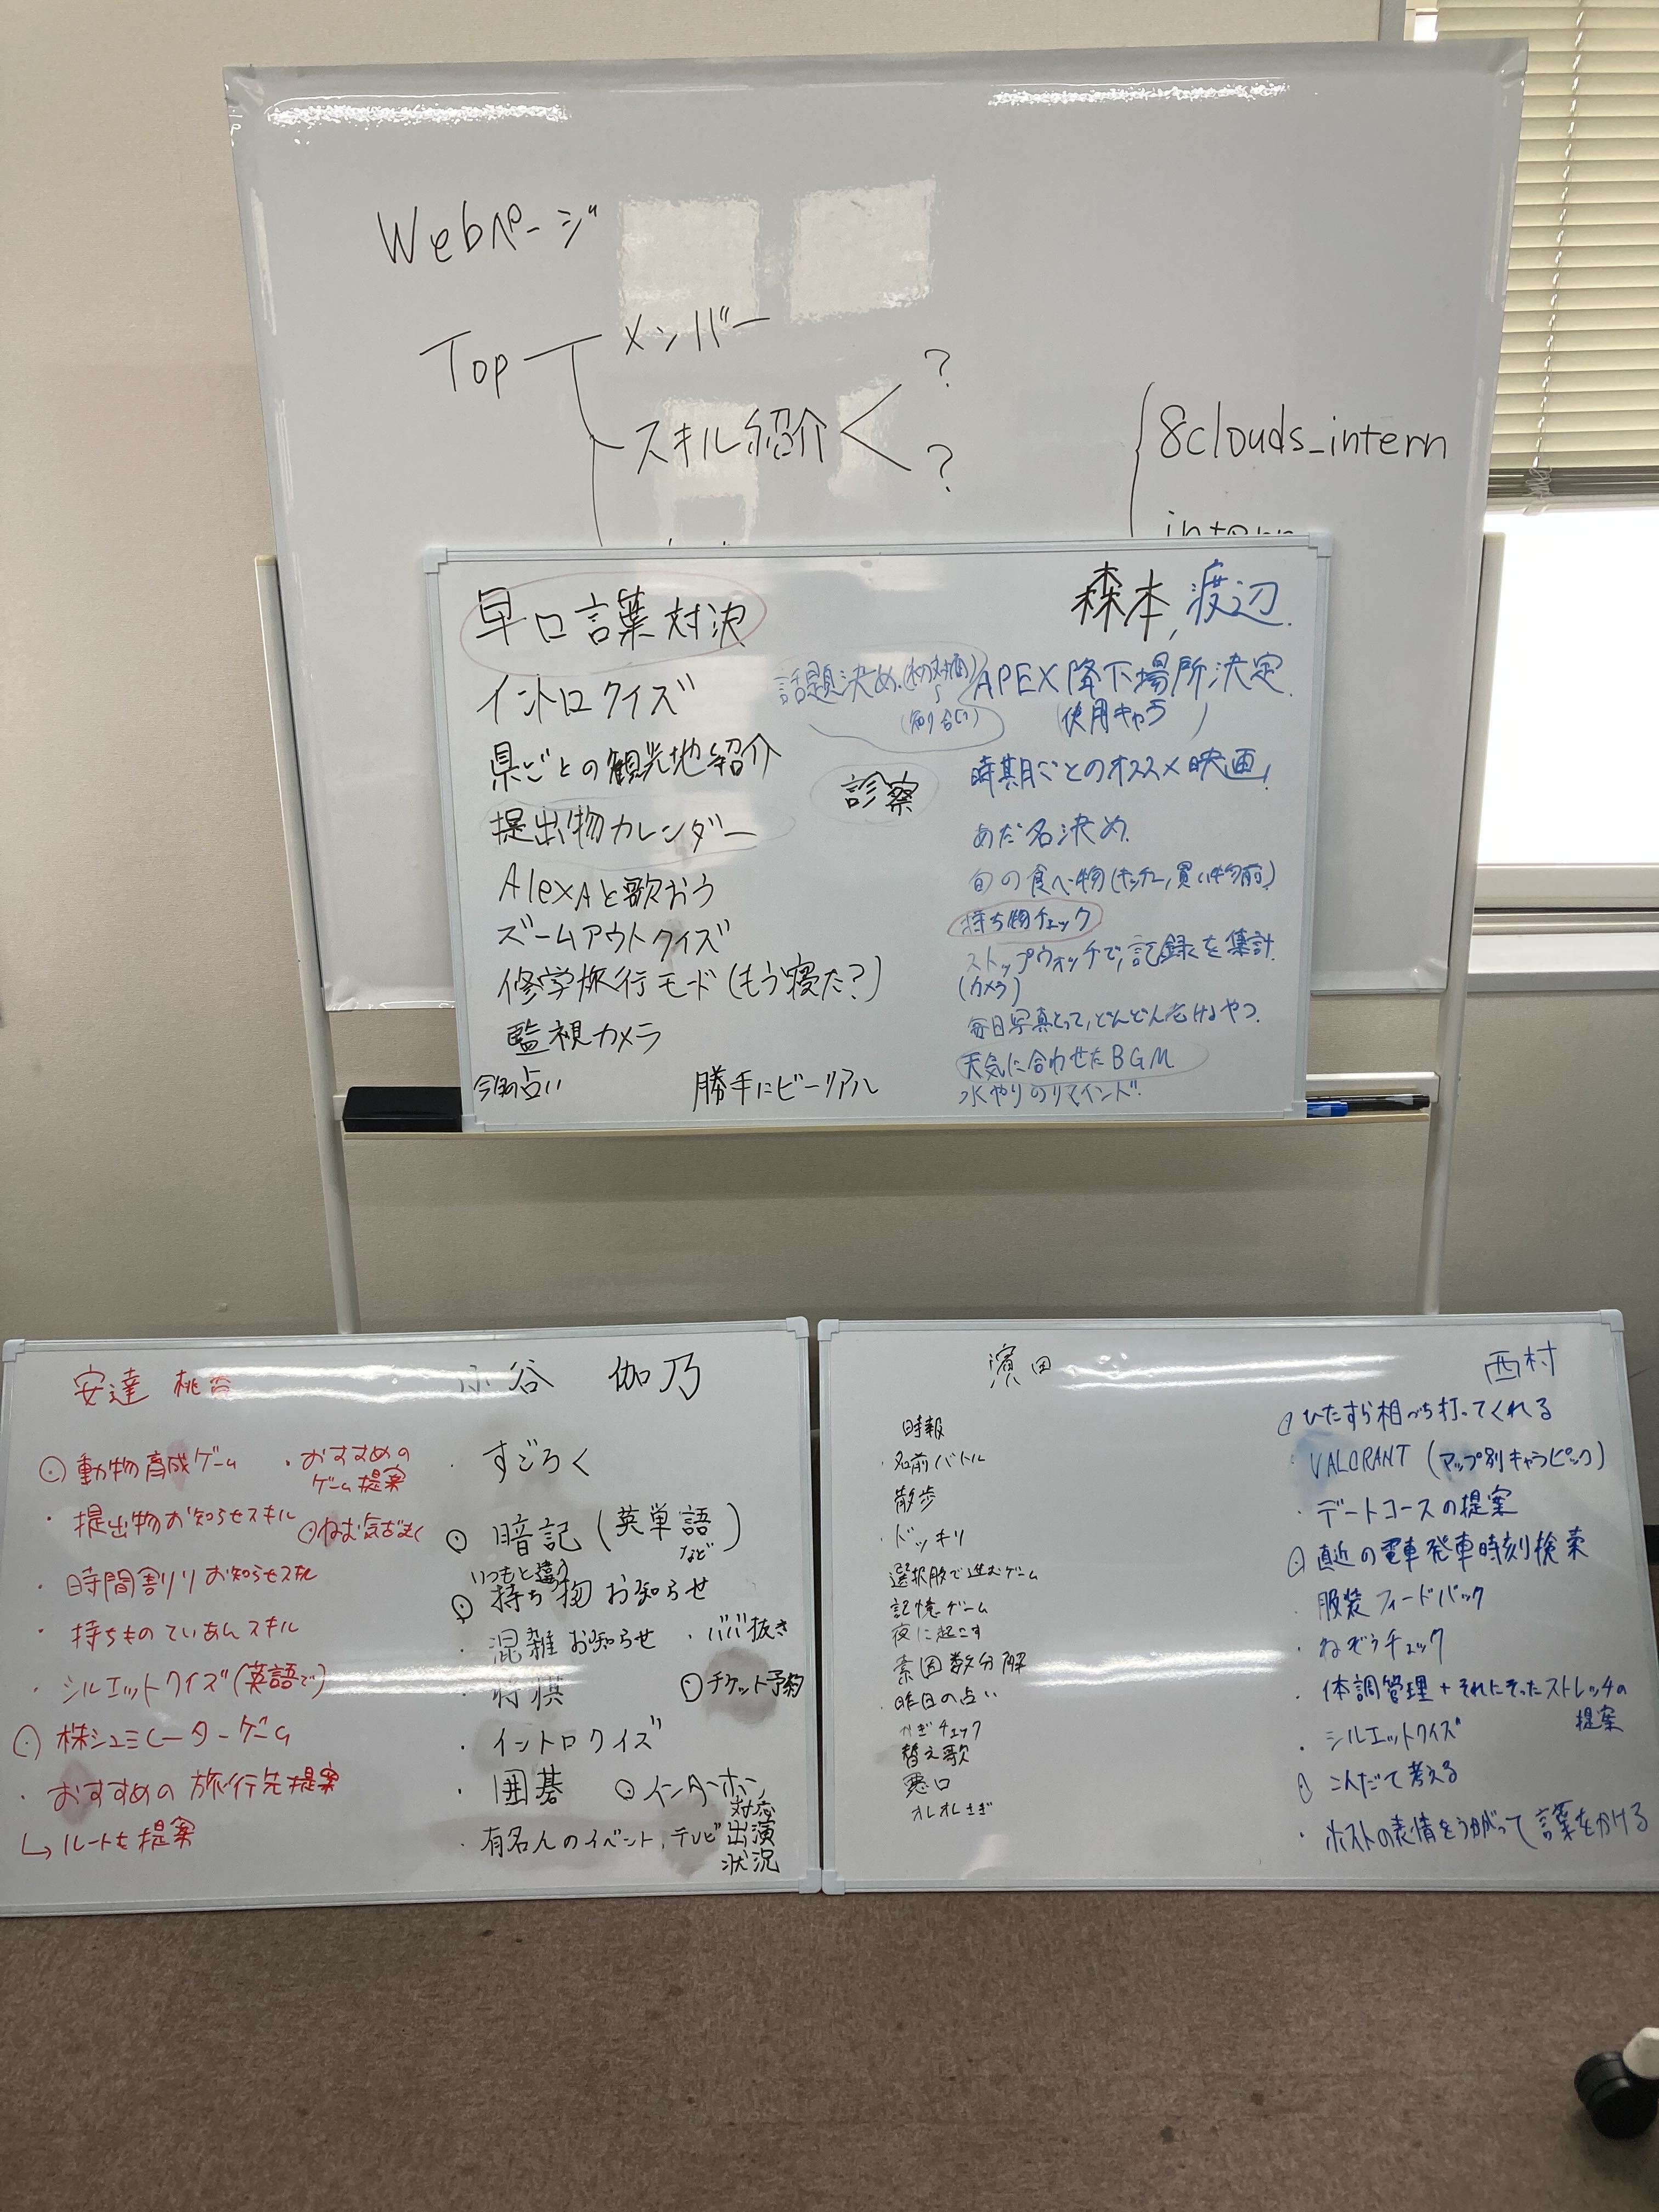 Webページ
Top
メンバー
スキル紹介
?
?
8clouds_intern
intern
早口言葉対決
森本, 渡辺.
イントロクイズ
話題決め.(初対面)
(知り合い)
APEX降下場所決定.
(使用キャラ)
県ごとの観光地紹介
診察
時期ごとのオススメ映画!
提出物カレンダー
あだ名決め.
AlexAと歌おう
旬の食べ物(キッチン, 買い物前)
ズームアウトクイズ
持ち物チェック
修学旅行モード(もう寝た?)
ストップウォッチで,記録を集計.
(カメラ)
監視カメラ
毎日写真とって,どんどん
やつ.
天気に合わせたBGM
占い
勝手にビーリアル
水やりのリマインド.
安達 桃
小谷 伽乃
動物育成ゲーム
・おすすめの
ゲーム提案
・提出物お知らせスキル
・時間割りお知らせスキル
・持ちものていあんスキル
・シルエットクイズ(英語で)
株シュミレーターゲーム
・おすすめの旅行先提案
↳ルートも提案
・すごろく
暗記(英単語)
など
いつもと違う
持ち物お知らせ
・混雑お知らせ
・ババ抜き
・将棋
チケット予約
・イントロクイズ
・囲碁
インターホン
対応
・有名人のイベント,テレビ
出演
状況
濱田
時報
・名前バトル
散歩
・ドッキリ
選択肢で進むゲーム
記憶ゲーム
夜に起こす
素因数分解
・昨日の占い
かぎチェック
替え歌
悪口
オレオレさぎ
西村
ひたすら相づち打ってくれる
・VALORANT (マップ別キャラピック)
・デートコースの提案
直近の電車発車時刻検索
・服装フィードバック
・ねぞうチェック
・体調管理+それにそったストレッチの
提案
・シルエットクイズ
こんだて考える
・ホストの表情をうかがって言葉をかける